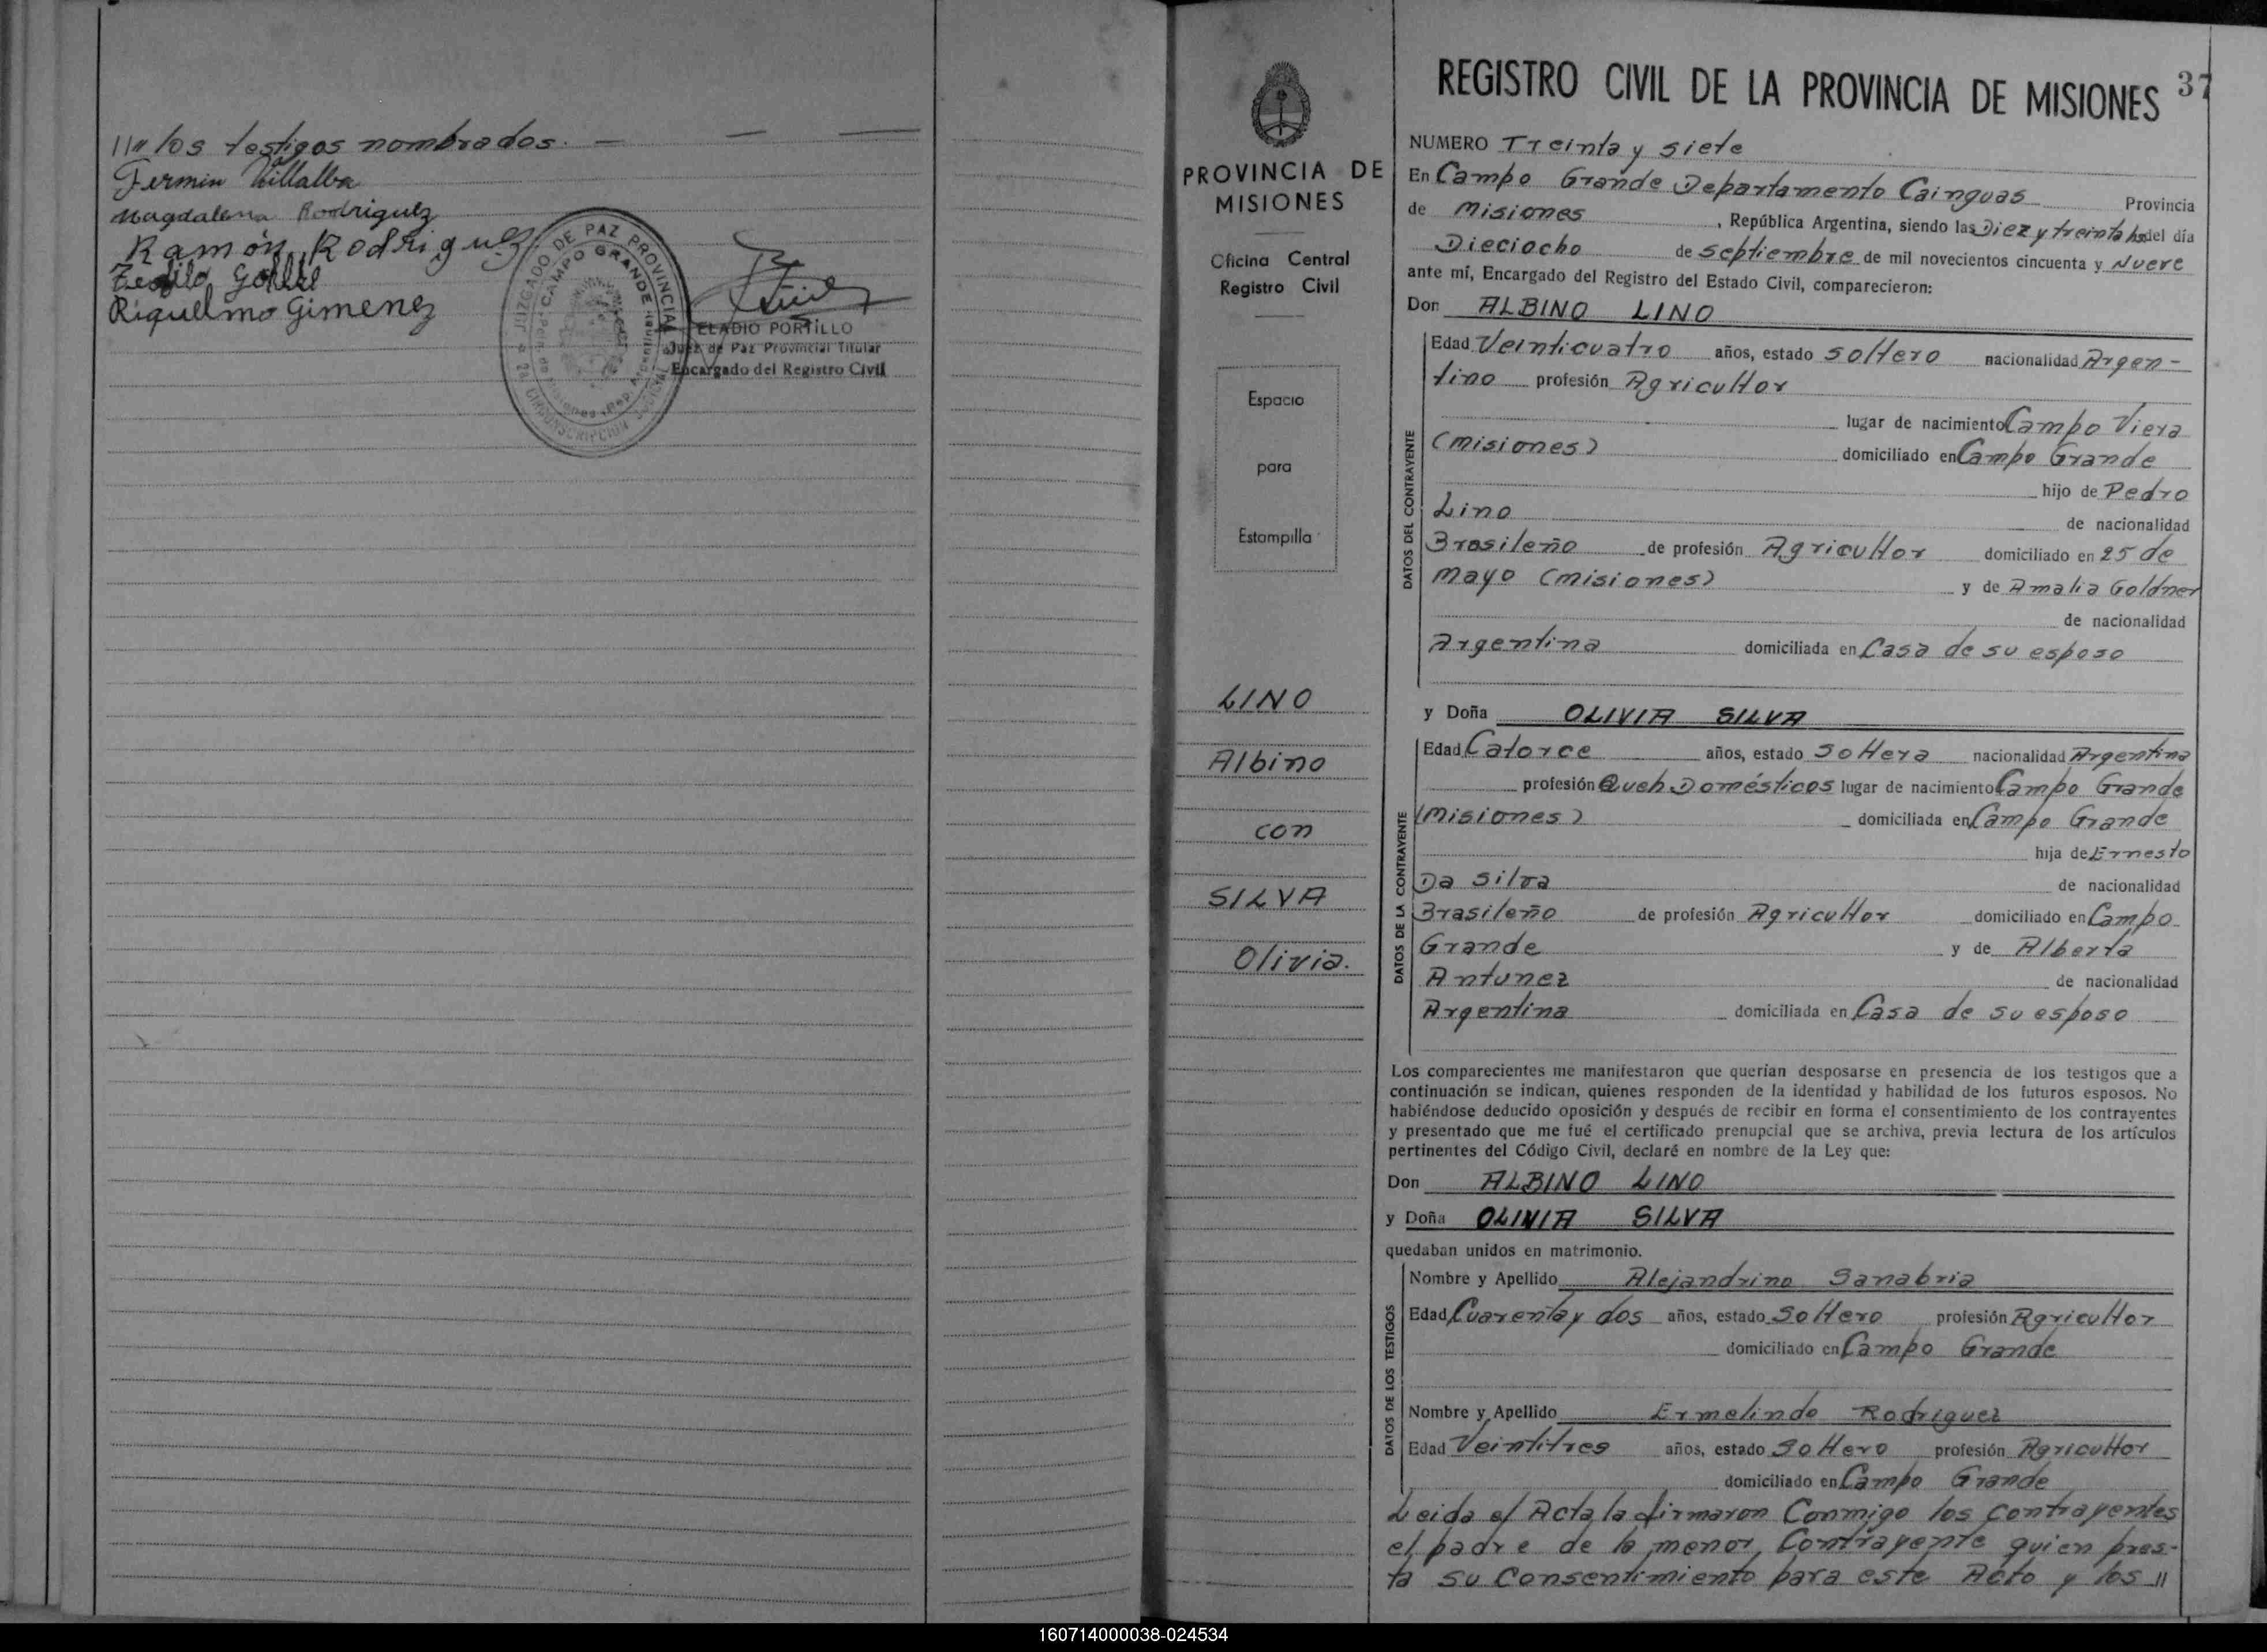 111" los testigos nombrados. —
Fermin Villalba
Magdalena Rodriguez
Ramón Rodriguez
Riquelmo Gimenez
JUZGADO DE PAZ PROVINCIAL
CAMPO GRANDE
2a. CIRCUNSCRIPCION JUDICIAL
ELADIO PORTILLO
Juez de Paz Provincial Titular
Encargado del Registro Civil
PROVINCIA DE
MISIONES
Oficina Central
Registro Civil
Espacio
para
Estampilla
LINO
Albino
con
SILVA
Olivia.
REGISTRO CIVIL DE LA PROVINCIA DE MISIONES 37
NUMERO Treinta y siete
En Campo Grande Departamento Cainguas Provincia
de Misiones, República Argentina, siendo las Diez y treinta hs del día
Dieciocho de septiembre de mil novecientos cincuenta y Nueve
ante mí, Encargado del Registro del Estado Civil, comparecieron:
Don ALBINO LINO
DATOS DEL CONTRAYENTE
Edad Veinticuatro años, estado soltero nacionalidad Argen-
tino profesión Agricultor
lugar de nacimiento Campo Viera
(Misiones) domiciliado en Campo Grande
hijo de Pedro
Lino de nacionalidad
Brasileño de profesión Agricultor domiciliado en 25 de
Mayo (Misiones) y de Amalia Goldner
de nacionalidad
Argentina domiciliada en Casa de su esposo
y Doña OLIVIA SILVA
DATOS DE LA CONTRAYENTE
Edad Catorce años, estado Soltera nacionalidad Argentina
profesión Queh. Domésticos lugar de nacimiento Campo Grande
(Misiones) domiciliada en Campo Grande
hija de Ernesto
Da Silva de nacionalidad
Brasileño de profesión Agricultor domiciliado en Campo
Grande y de Alberta
Antunez de nacionalidad
Argentina domiciliada en Casa de su esposo
Los comparecientes me manifestaron que querían desposarse en presencia de los testigos que a
continuación se indican, quienes responden de la identidad y habilidad de los futuros esposos. No
habiéndose deducido oposición y después de recibir en forma el consentimiento de los contrayentes
y presentado que me fué el certificado prenupcial que se archiva, previa lectura de los artículos
pertinentes del Código Civil, declaré en nombre de la Ley que:
Don ALBINO LINO
y Doña OLIVIA SILVA
quedaban unidos en matrimonio.
DATOS DE LOS TESTIGOS
Nombre y Apellido Alejandrino Sanabria
Edad Cuarenta y dos años, estado Soltero profesión Agricultor
domiciliado en Campo Grande
Nombre y Apellido Ermelindo Rodriguez
Edad Veintitres años, estado Soltero profesión Agricultor
domiciliado en Campo Grande
Leida el Acta la firmaron Conmigo los contrayentes
el padre de la menor, Contrayente quien pres-
ta su Consentimiento para este Acto y los 11
160714000038-024534